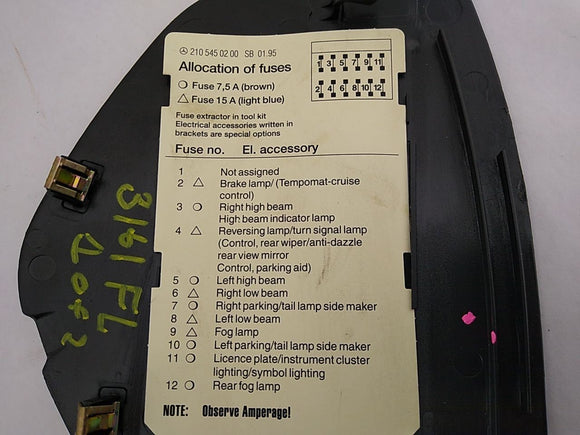 210 545 02 00 SB 01.95
Allocation of fuses
○ Fuse 7,5 A (brown)
△ Fuse 15 A (light blue)
Fuse extractor in tool kit
Electrical accessories written in
brackets are special options
1 3 5 7 9 11
2 4 6 8 10 12
Fuse no. El. accessory
1 Not assigned
2 △ Brake lamp/ (Tempomat-cruise
control)
3 ○ Right high beam
High beam indicator lamp
4 △ Reversing lamp/turn signal lamp
(Control, rear wiper/anti-dazzle
rear view mirror
Control, parking aid)
5 ○ Left high beam
6 △ Right low beam
7 ○ Right parking/tail lamp side maker
8 △ Left low beam
9 △ Fog lamp
10 ○ Left parking/tail lamp side maker
11 ○ Licence plate/instrument cluster
lighting/symbol lighting
12 ○ Rear fog lamp
NOTE: Observe Amperage!
3161 FL